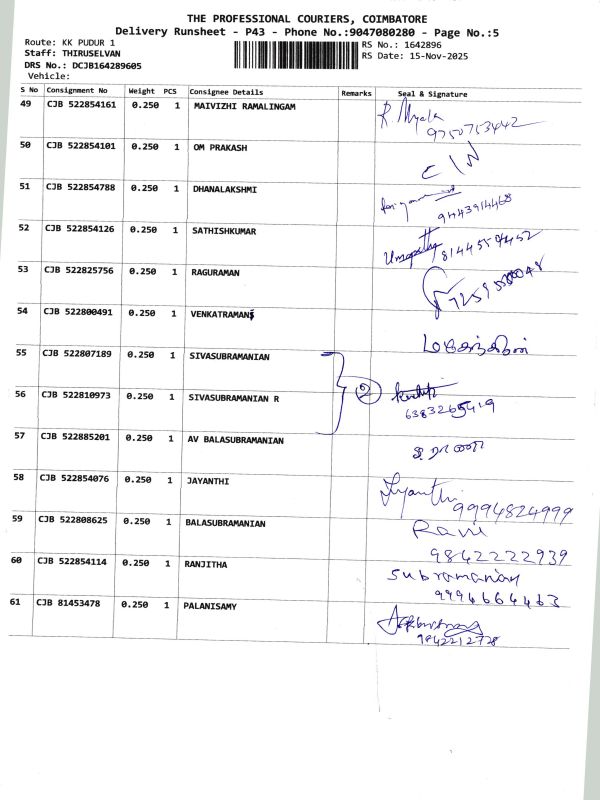 THE PROFESSIONAL COURIERS, COIMBATORE
Delivery Runsheet - P43 - Phone No.:9047080280 - Page No.:5
Route: KK PUDUR 1
Staff: THIRUSELVAN
DRS No.: DCJB164289605
Vehicle:
RS No.: 1642896
RS Date: 15-Nov-2025
S No Consignment No Weight PCS Consignee Details Remarks Seal & Signature
49 CJB 522854161 0.250 1 MAIVIZHI RAMALINGAM
9750753442
50 CJB 522854101 0.250 1 OM PRAKASH
51 CJB 522854788 0.250 1 DHANALAKSHMI
9443914468
52 CJB 522854126 0.250 1 SATHISHKUMAR
8144559452
53 CJB 522825756 0.250 1 RAGURAMAN
54 CJB 522800491 0.250 1 VENKATRAMANI
55 CJB 522807189 0.250 1 SIVASUBRAMANIAN
2
56 CJB 522810973 0.250 1 SIVASUBRAMANIAN R
6383265419
57 CJB 522885201 0.250 1 AV BALASUBRAMANIAN
58 CJB 522854076 0.250 1 JAYANTHI
Jayanthi 9994824999
59 CJB 522808625 0.250 1 BALASUBRAMANIAN
Ravi
9842222939
60 CJB 522854114 0.250 1 RANJITHA
Subramanian
9994664463
61 CJB 81453478 0.250 1 PALANISAMY
9842212728